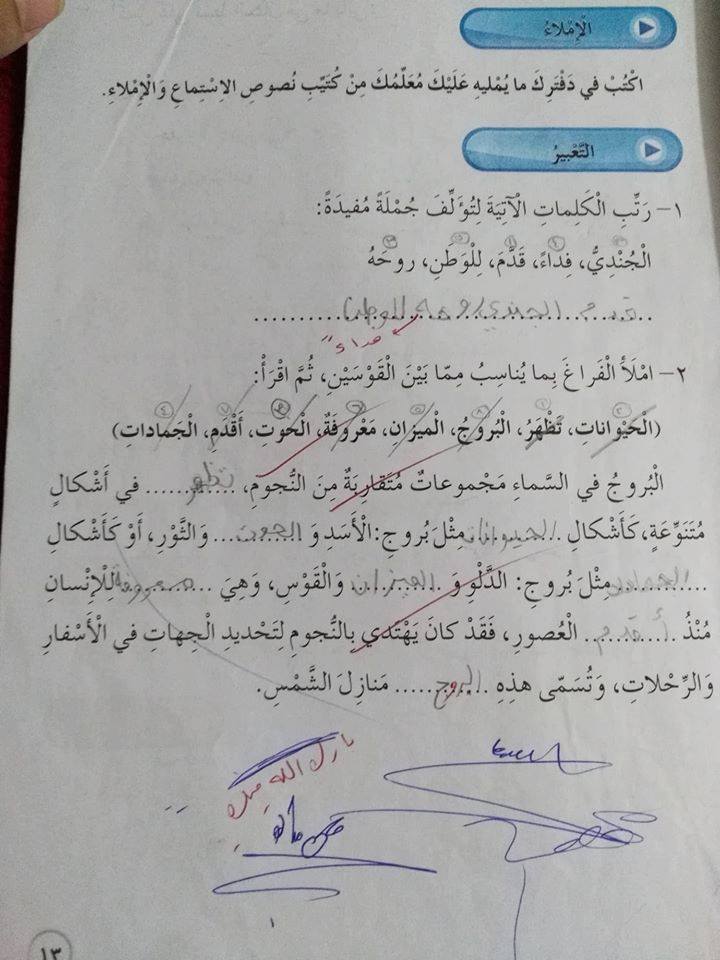 الْإِمْلاءُ
اكْتُبْ في دَفْتَرِكَ ما يُمْليهِ عَلَيْكَ مُعَلِّمُكَ مِنْ كُتَيِّبِ نُصوصِ الِاسْتِماعِ وَالْإِمْلاءِ.
التَّعْبيرُ
١- رَتِّبِ الْكَلِماتِ الْآتِيَةَ لِتُؤَلِّفَ جُمْلَةً مُفيدَةً:
الْجُنْدِيُّ، فِداءً، قَدَّمَ، لِلْوَطَنِ، روحَهُ
قدم الجندي روحه للوطن
فداءً
٢- امْلَأ الْفَراغَ بِما يُناسِبُ مِمّا بَيْنَ الْقَوْسَيْنِ، ثُمَّ اقْرَأْ:
(الْحَيْواناتِ، تَظْهَرُ، الْبُروجُ، الْميزانِ، مَعْروفَةٌ، الْحوتِ، أَقْدَمِ، الْجَماداتِ)
الْبُروجُ في السَّماءِ مَجْموعاتٌ مُتَقارِبَةٌ مِنَ النُّجومِ، ............ تظهر في أَشْكالٍ
مُتَنَوِّعَةٍ، كَأَشْكالِ الحيوانات مِثْلَ بُروجِ: الْأَسَدِ وَ الحوت وَالثَّوْرِ، أَوْ كَأَشْكالِ
الجمادات مِثْلِ بُروجِ: الدَّلْوِ وَ الميزان وَالْقَوْسِ، وَهِيَ معروفة لِلْإِنْسانِ
مُنْذُ أقدم الْعُصورِ، فَقَدْ كانَ يَهْتَدي بِالنُّجومِ لِتَحْديدِ الْجِهاتِ في الْأَسْفارِ
وَالرِّحْلاتِ، وَتُسَمّى هذِهِ البروج مَنازِلَ الشَّمْسِ.
بارك الله فيك
١٣